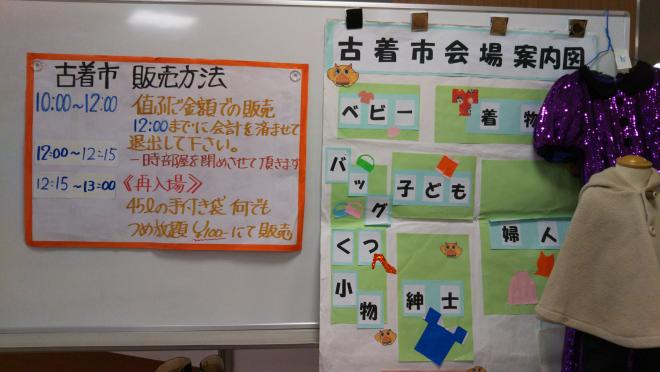 古着市 販売方法
10:00～12:00 値ふだ金額での販売
12:00までに会計を済ませて
退出して下さい。
12:00～12:15 一時部屋を閉めさせて頂きます
12:15～13:00 《再入場》
45ℓの手付き袋 何でも
つめ放題 ¥100-にて販売
古着市会場案内図
ベビー
着物
バッグ
子ども
婦人
くつ
小物
紳士